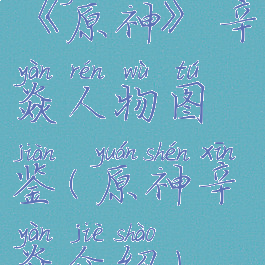 《原神》辛
yàn rén wù tú
焱人物图
jiàn yuán shén xīn
鉴(原神辛
yàn jiè shào
焱介绍)